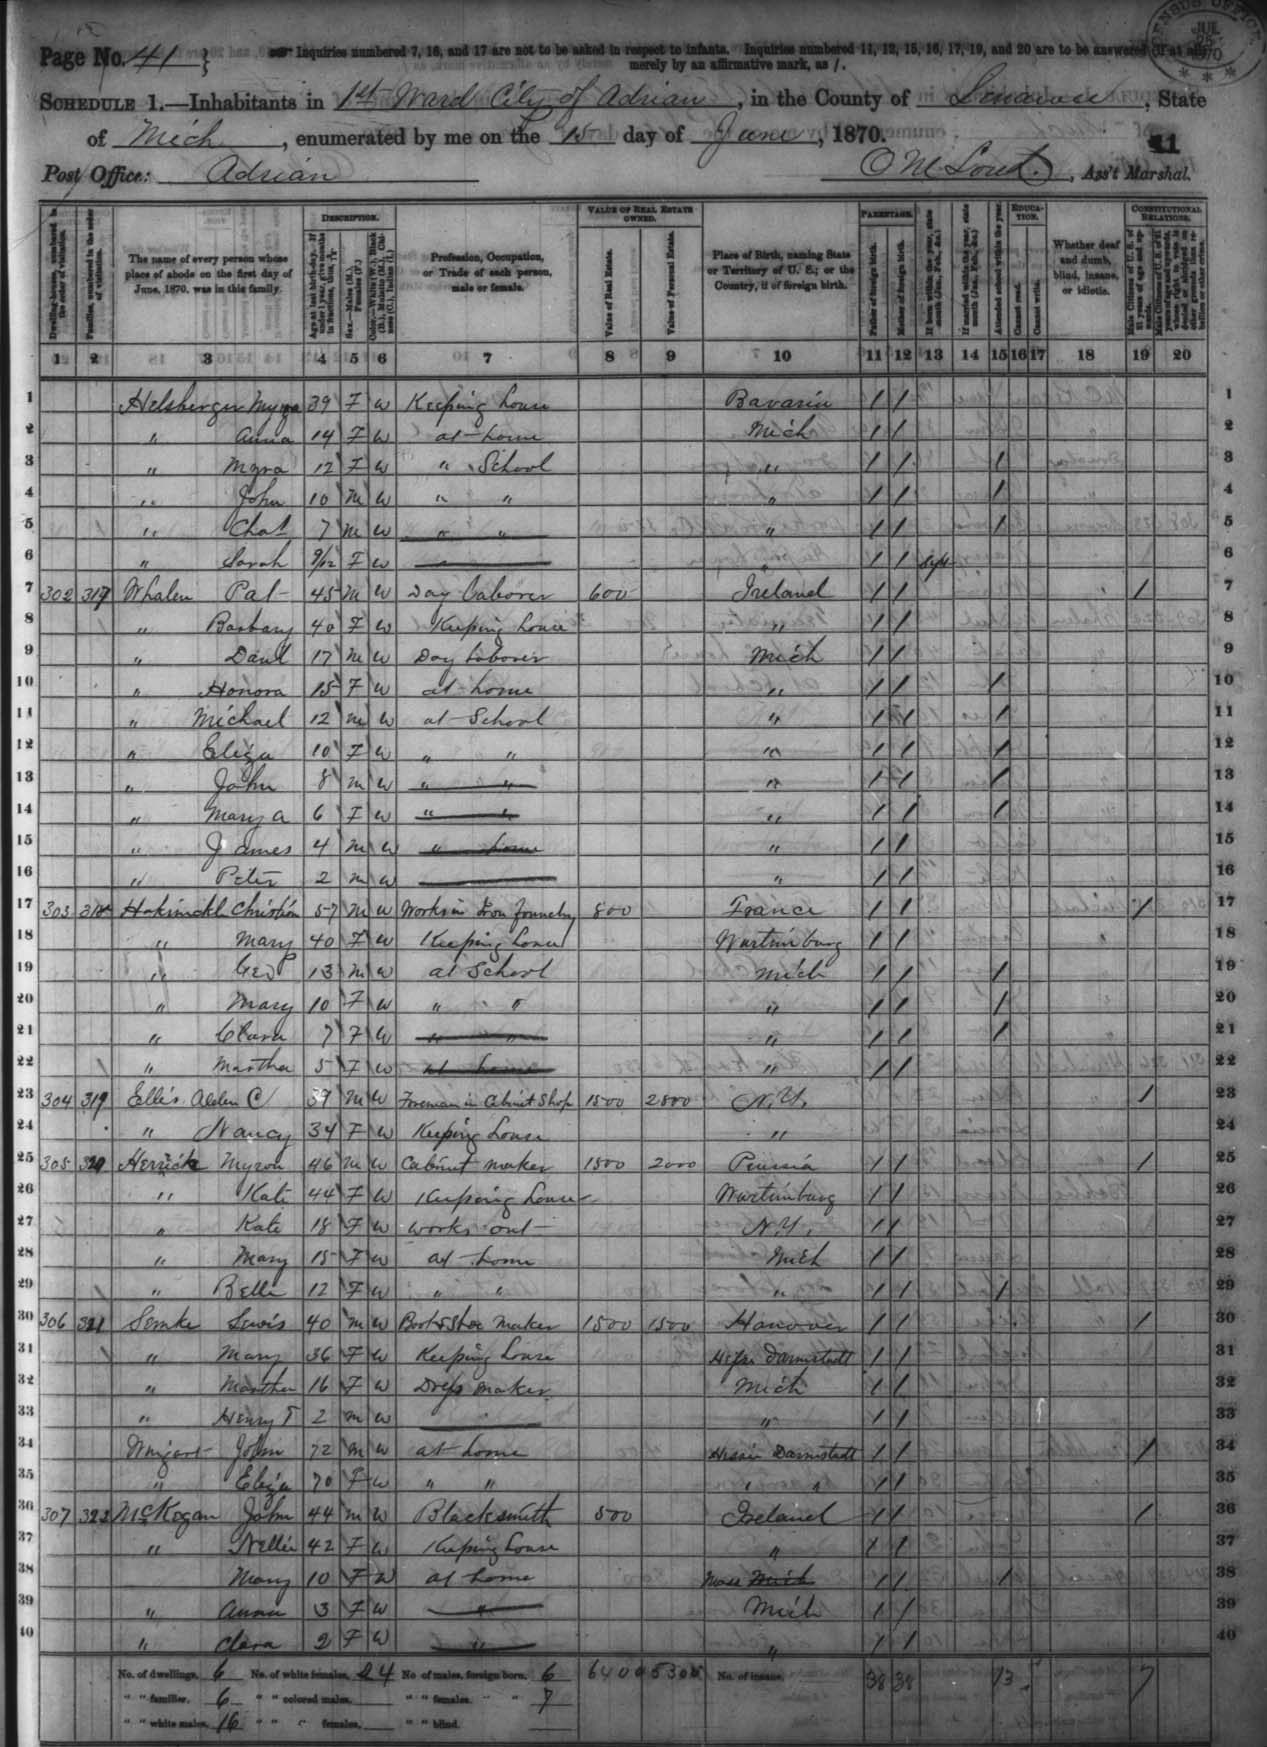 Page No. 41 } Inquiries numbered 7, 16, and 17 are not to be asked in respect to infants. Inquiries numbered 11, 12, 15, 16, 17, 19, and 20 are to be answered (if at all)
merely by an affirmative mark, as /.
CENSUS OFFICE JUL 1870
SCHEDULE 1.—Inhabitants in 1st Ward City of Adrian, in the County of Lenawee, State
of Mich, enumerated by me on the 15 day of June, 1870.
Post Office: Adrian , Ass't Marshal.
DESCRIPTION. VALUE OF REAL ESTATE OWNED. PARENTAGE. EDUCATION. CONSTITUTIONAL RELATIONS.
Dwelling-houses, numbered in the order of visitation. Families, numbered in the order of visitation. The name of every person whose place of abode on the first day of June, 1870, was in this family. Profession, Occupation, or Trade of each person, male or female. Value of Real Estate. Value of Personal Estate. Place of Birth, naming State or Territory of U. S.; or the Country, if of foreign birth. Father of foreign birth. Mother of foreign birth. Attended school within the year. Cannot read. Cannot write. Whether deaf and dumb, blind, insane, or idiotic.
1 2 3 4 5 6 7 8 9 10 11 12 13 14 15 16 17 18 19 20
1 Helsberger Myra 39 F W Keeping house Bavaria / / 1
2 " Anna 14 F W at home Mich / / 2
3 " Myra 12 F W " School " / / / 3
4 " John 10 M W " " " / / / 4
5 " Chas 7 M W " " " / / / 5
6 " Sarah 9/12 F W " / / Sept 6
7 302 317 Whalen Pat 45 M W Day laborer 600 Ireland / / / 7
8 " Barbary 40 F W Keeping house " / / 8
9 " Danl 17 M W Day laborer Mich / / 9
10 " Honora 15 F W at home " / / / 10
11 " Michael 12 M W at School " / / / 11
12 " Eliza 10 F W " " " / / / 12
13 " John 8 M W " " " / / / 13
14 " Mary A 6 F W " " " / / / 14
15 " James 4 M W " home " / / 15
16 " Peter 2 M W " / / 16
17 303 318 Christian 57 M W Works in Iron foundry 800 France / / / 17
18 " Mary 40 F W Keeping house Wurtimburg / / 18
19 " Geo P 13 M W at School Mich / / / 19
20 " Mary 10 F W " " " / / / 20
21 " Clara 7 F W " " " / / / 21
22 " Martha 5 F W at home " / / 22
23 304 319 Ellis Alden C 39 M W Foreman in Cabinet Shop 1500 2800 N.Y. / 23
24 " Nancy 34 F W Keeping house " 24
25 305 320 Herrick Myron 46 M W Cabinet maker 1500 2000 Prussia / / / 25
26 " Kate 44 F W Keeping house Wurtimburg / / 26
27 " Kate 18 F W works out N.Y. / / 27
28 " Mary 15 F W at home Mich / / 28
29 " Belle 12 F W " " " / / / 29
30 306 321 Semke Lewis 40 M W Boot & Shoe Maker 1500 1500 Hanover / / / 30
31 " Mary 36 F W Keeping house Hesse Darmstadt / / 31
32 " Martha 16 F W Dress maker Mich / / 32
33 " Henry T 2 M W " / / 33
34 John 72 M W at home Hesse Darmstadt / / / 34
35 " Eliza 70 F W " " " " / / 35
36 307 322 McKogan John 44 M W Blacksmith 500 Ireland / / / 36
37 " Nellie 42 F W Keeping house " / / 37
38 Mary 10 F W at home Mass Mich / / / 38
39 " Anna 3 F W " Mich / / 39
40 " Clara 2 F W " " / / 40
No. of dwellings, 6 No. of white females, 24 No. of males, foreign born, 6 6400 5300 No. of insane, 38 38 13 7
" " families, 6 " " colored males, " " females, " " 7
" " white males, 16 " " " females, " " blind,